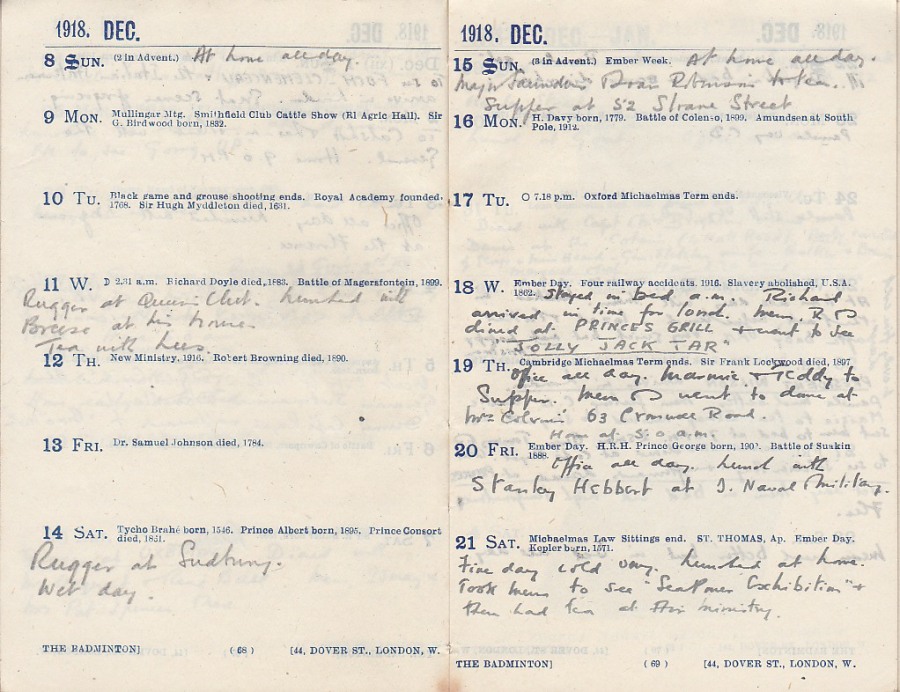 1918. DEC.
8 SUN. (2 in Advent.) At home all day.
9 MON. Mullingar Mtg. Smithfield Club Cattle Show (Rl Agric Hall). Sir
G. Birdwood born, 1832.
10 TU. Black game and grouse shooting ends. Royal Academy founded,
1768. Sir Hugh Myddleton died, 1631.
11 W. 2.31 a.m. Richard Doyle died, 1883. Battle of Magersfontein, 1899.
Rugger at Queens Club. Lunched with
at his house
Tea with
12 TH. New Ministry, 1916. Robert Browning died, 1890.
13 FRI. Dr. Samuel Johnson died, 1784.
14 SAT. Tycho Brahe born, 1546. Prince Albert born, 1895. Prince Consort
died, 1861.
Rugger at Sudbury.
Wet day.
THE BADMINTON] (68) [44, DOVER ST., LONDON, W.
1918. DEC.
15 SUN. (3 in Advent.) Ember Week. At home all day.
Major Saunders Robinson to tea.
Supper at 52 Sloane Street
16 MON. H. Davy born, 1779. Battle of Colenso, 1899. Amundsen at South
Pole, 1912.
17 TU. O 7.18 p.m. Oxford Michaelmas Term ends.
18 W. Ember Day. Four railway accidents, 1916. Slavery abolished, U.S.A.
1862. Stayed in bed a.m. Richard
arrived in time for lunch. Mem, R
dined at PRINCES GRILL & went to see
"JOLLY JACK TAR"
19 TH. Cambridge Michaelmas Term ends. Sir Frank Lockwood died, 1897
Office all day. Marmie & Teddy to
Supper. Mem went to dance at
Mrs 63 Cromwell Road.
Home at 3.0 a.m.
20 FRI. Ember Day. H.R.H. Prince George born, 1902. Battle of Suakin
1888.
Office all day. Lunch with
Stanley Hebbert at J. Naval & Military.
21 SAT. Michaelmas Law Sittings end. ST. THOMAS, Ap. Ember Day.
Kepler born, 1571.
Fine day cold very. Lunched at home.
Took Mem to see "Sea Power Exhibition" &
then had tea at Air Ministry.
THE BADMINTON] (69) [44, DOVER ST., LONDON, W.